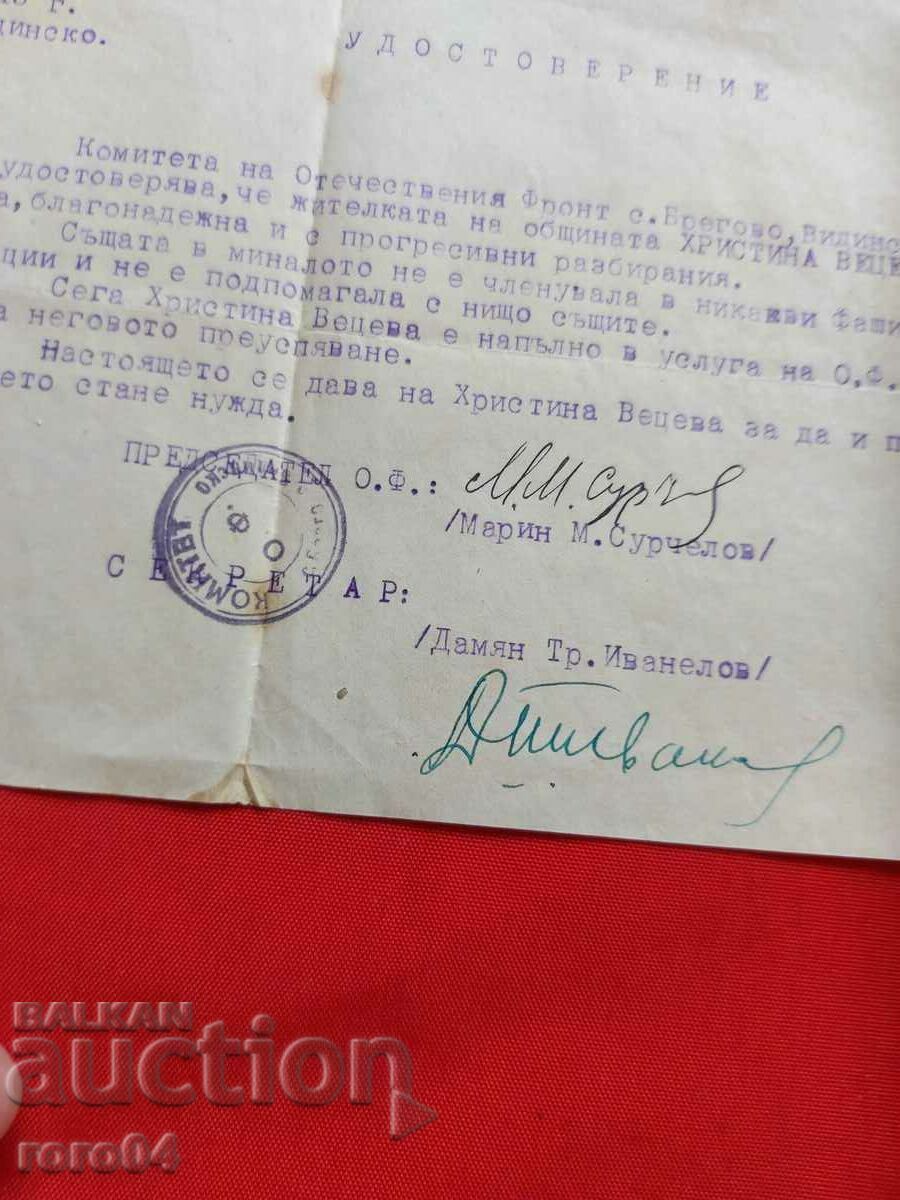 г.
динско.
УДОСТОВЕРЕНИЕ
Комитета на Отечествения Фронт с.Брегово,Видинс
удостоверява,че жителката на общината ХРИСТИНА ВЕЦЕ
а,благонадежна и с прогресивни разбирания.
Същата в миналото не е членувала в никакви фаши
ции и не е подпомагала с нищо същите.
Сега Христина Вецева е напълно в услуга на О.Ф.
а неговото преуспяване.
Настоящето се дава на Христина Вецева за да и п
ето стане нужда.
ПРЕДСЕДАТЕЛ О.Ф.: М.М.Сурч
/Марин М.Сурчелов/
СЕКРЕТАР:
/Дамян Тр.Иванелов/
КОМИТЕТ
О Ф.
BALKAN
auction
roro04